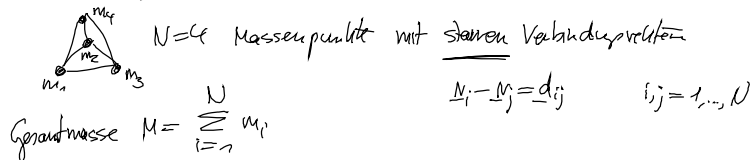 m₄
N=4 Massenpunkte mit starren Verbindungsvektoren
m₂
m₁ m₃
r_i - r_j = d_ij i,j = 1,..., N
Gesamtmasse M = \sum_{i=1}^{N} m_i